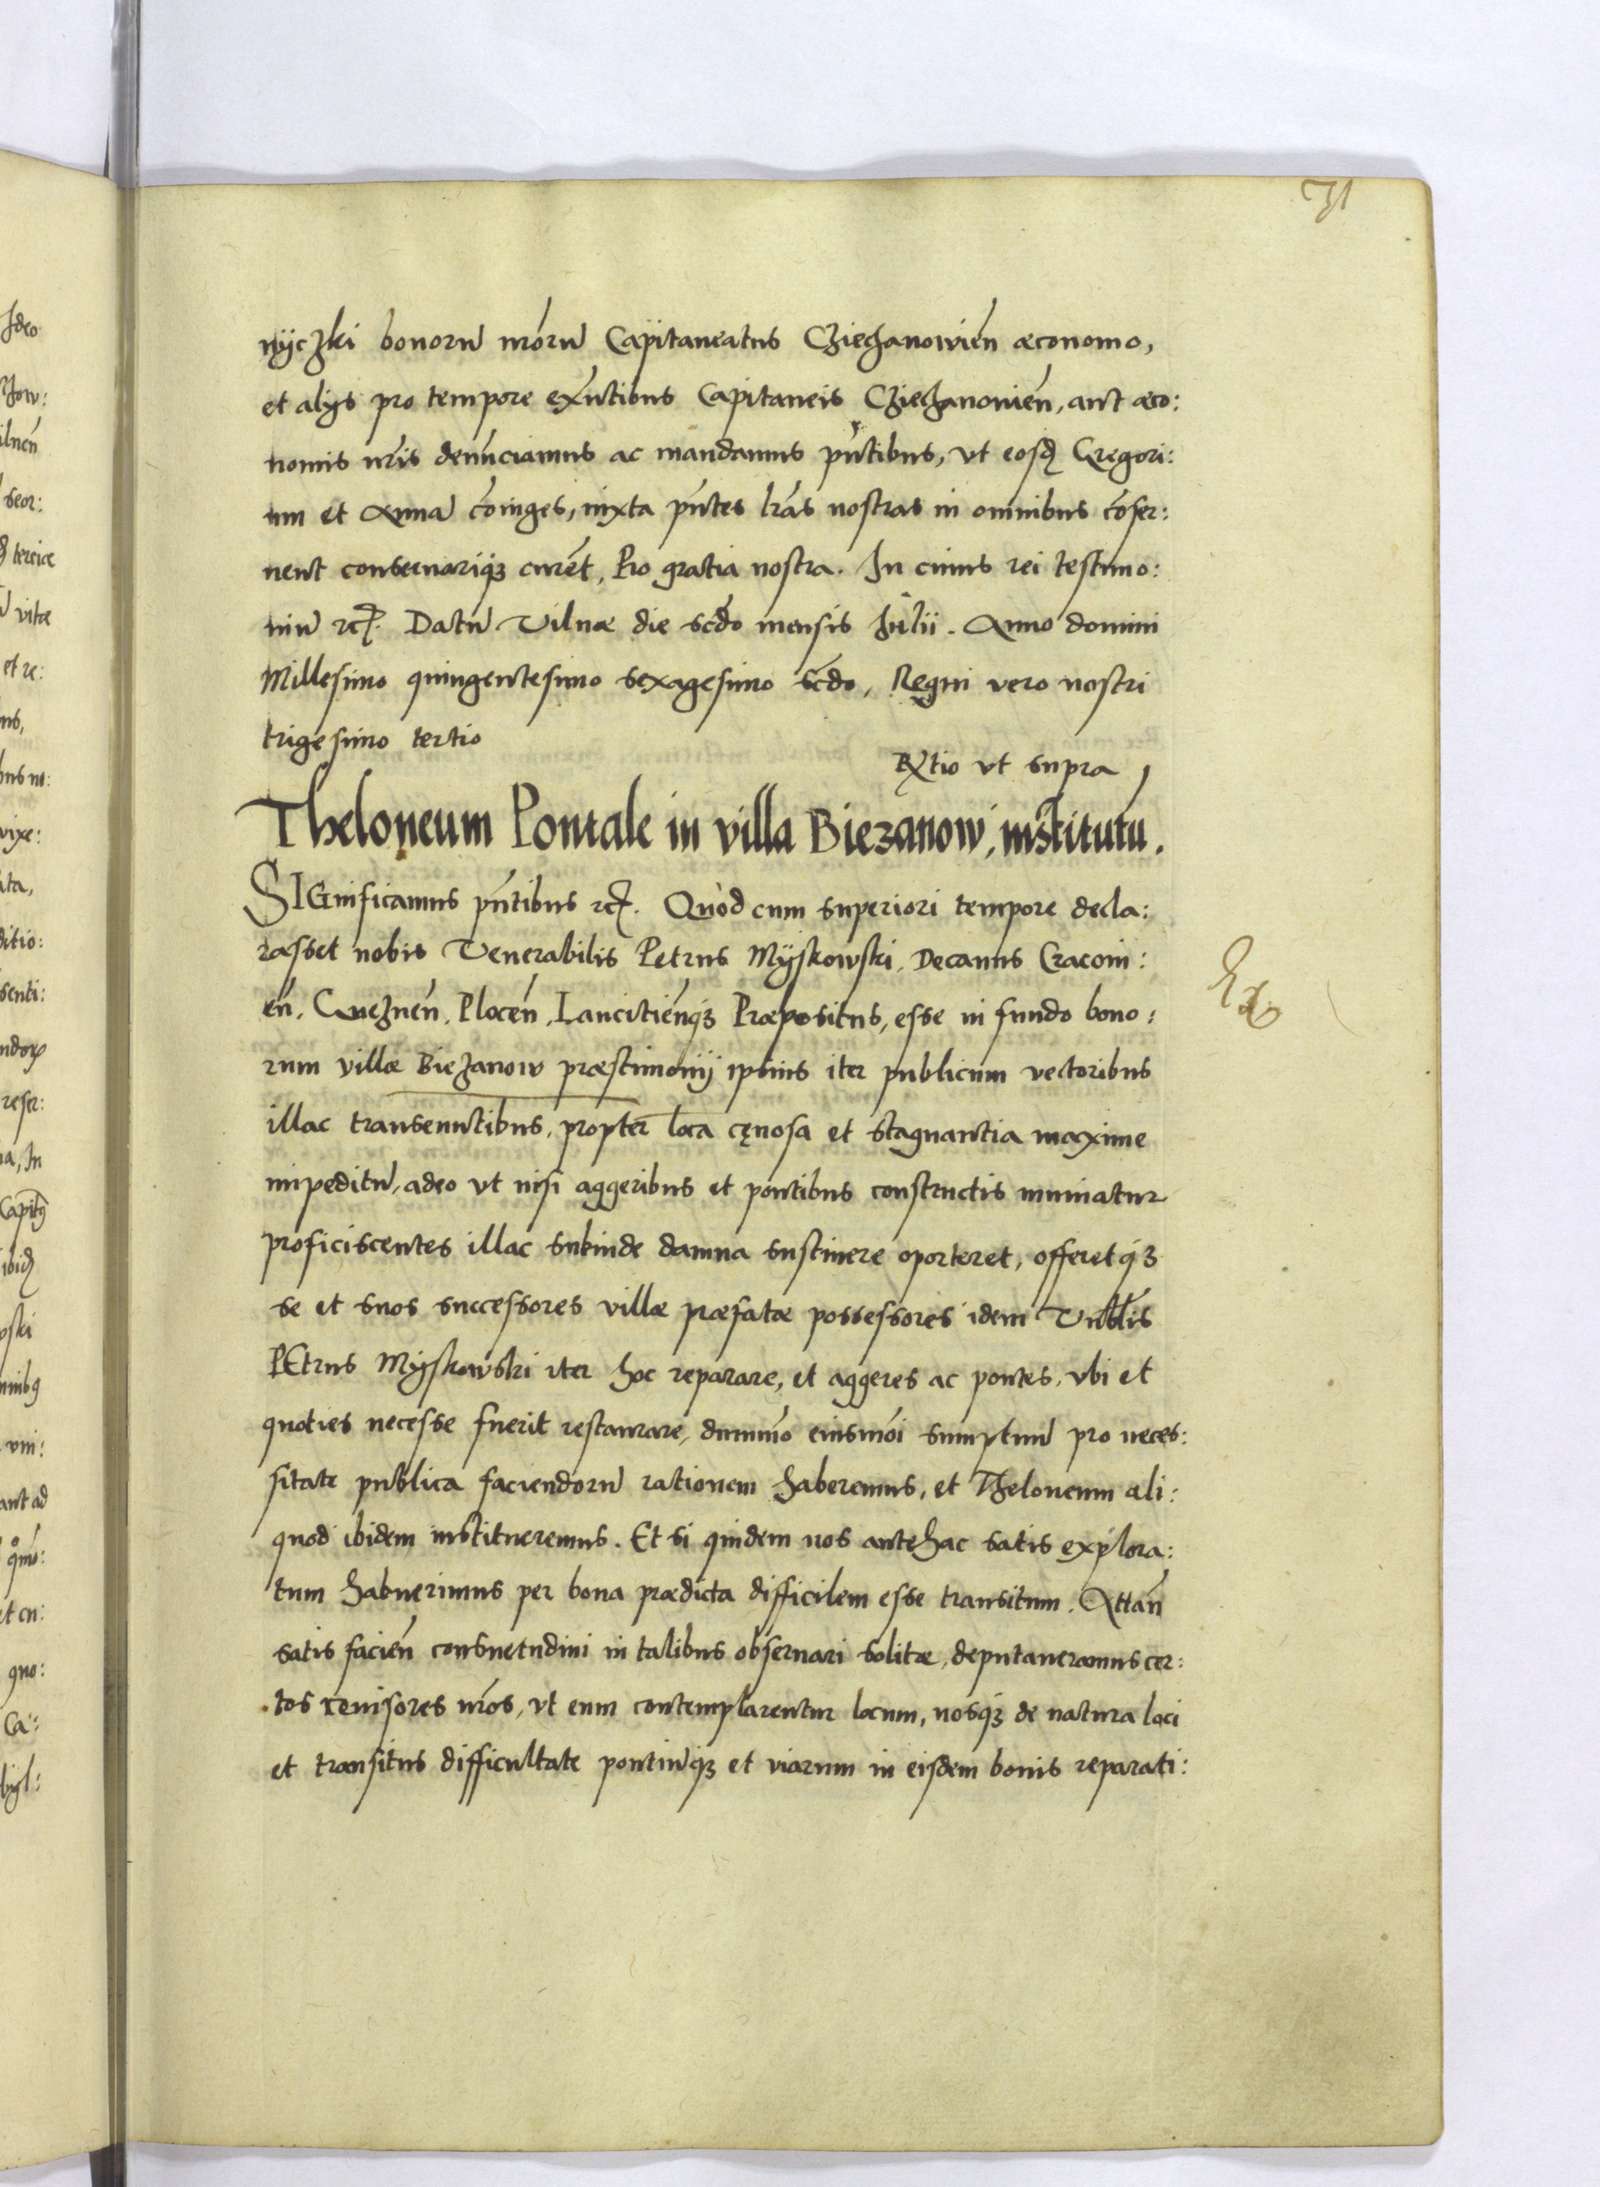 71
nyczki bonorū nrōrū Capitaneatus Cziechanowień œconomo,
et alÿs pro tempore exn̄tibus Capitaneis Cziechanovień, aut œco:
nomis nrīs denunciamus ac mandamus pn̄tibus, vt eosdʒ Gregori:
um et Annā cōiuges, iuxta pn̄tes lrās nostras in omnibus cōser:
vent conservariqʒ curēt, Pro gratia nostra. In cuius rei testimo:
niū etc. Datū Vilnæ die scd̄o mensis Julii. Anno domini
Millesimo quingentesimo sexagesimo scd̄o, Regni vero nostri
trigesimo tertio
Rx̄tio vt supra
Theloneum Pontale in villa Biezanow, institutū.
SIGnificamus pn̄tibus etc. Quòd cum superiori tempore decla:
rasset nobis Venerabilis Petrus Myskowski, Decanus Cracovi:
eń, Gnezneń, Ploceń, Lancitieńqʒ Præpositus, esse in fundo bono:
rum villæ Biezanow præstimonij ipsius iter publicum vectoribus
illac transeuntibus, propter loca cęnosa et stagnantia maxime
impeditū, adeo vt nisi aggeribus et pontibus constructis muniatur
proficiscentes illac subinde damna sustinere oporteret, offeretqʒ
se et suos successores villæ præfatæ possessores idem Vnb̄lis
PEtrus Myskowski iter hoc reparare, et aggeres ac pontes, vbi et
quoties necesse fuerit restaurare, dummō eiusmōi sumptuū pro neces:
sitate publica faciendorū rationem haberemus, et Theloneum ali:
quod ibidem institueremus. Et si quidem nos antehac satis explora:
tum habuerimus per bona prædicta difficilem esse transitum. Attań
satis facień consuetudini in talibus observari solitæ, deputaveramus cer:
tos revisores nrōs, vt eum contemplarentur locum, nosqʒ de natura loci
et transitus difficultate pontiūqʒ et viarum in eisdem bonis reparati: